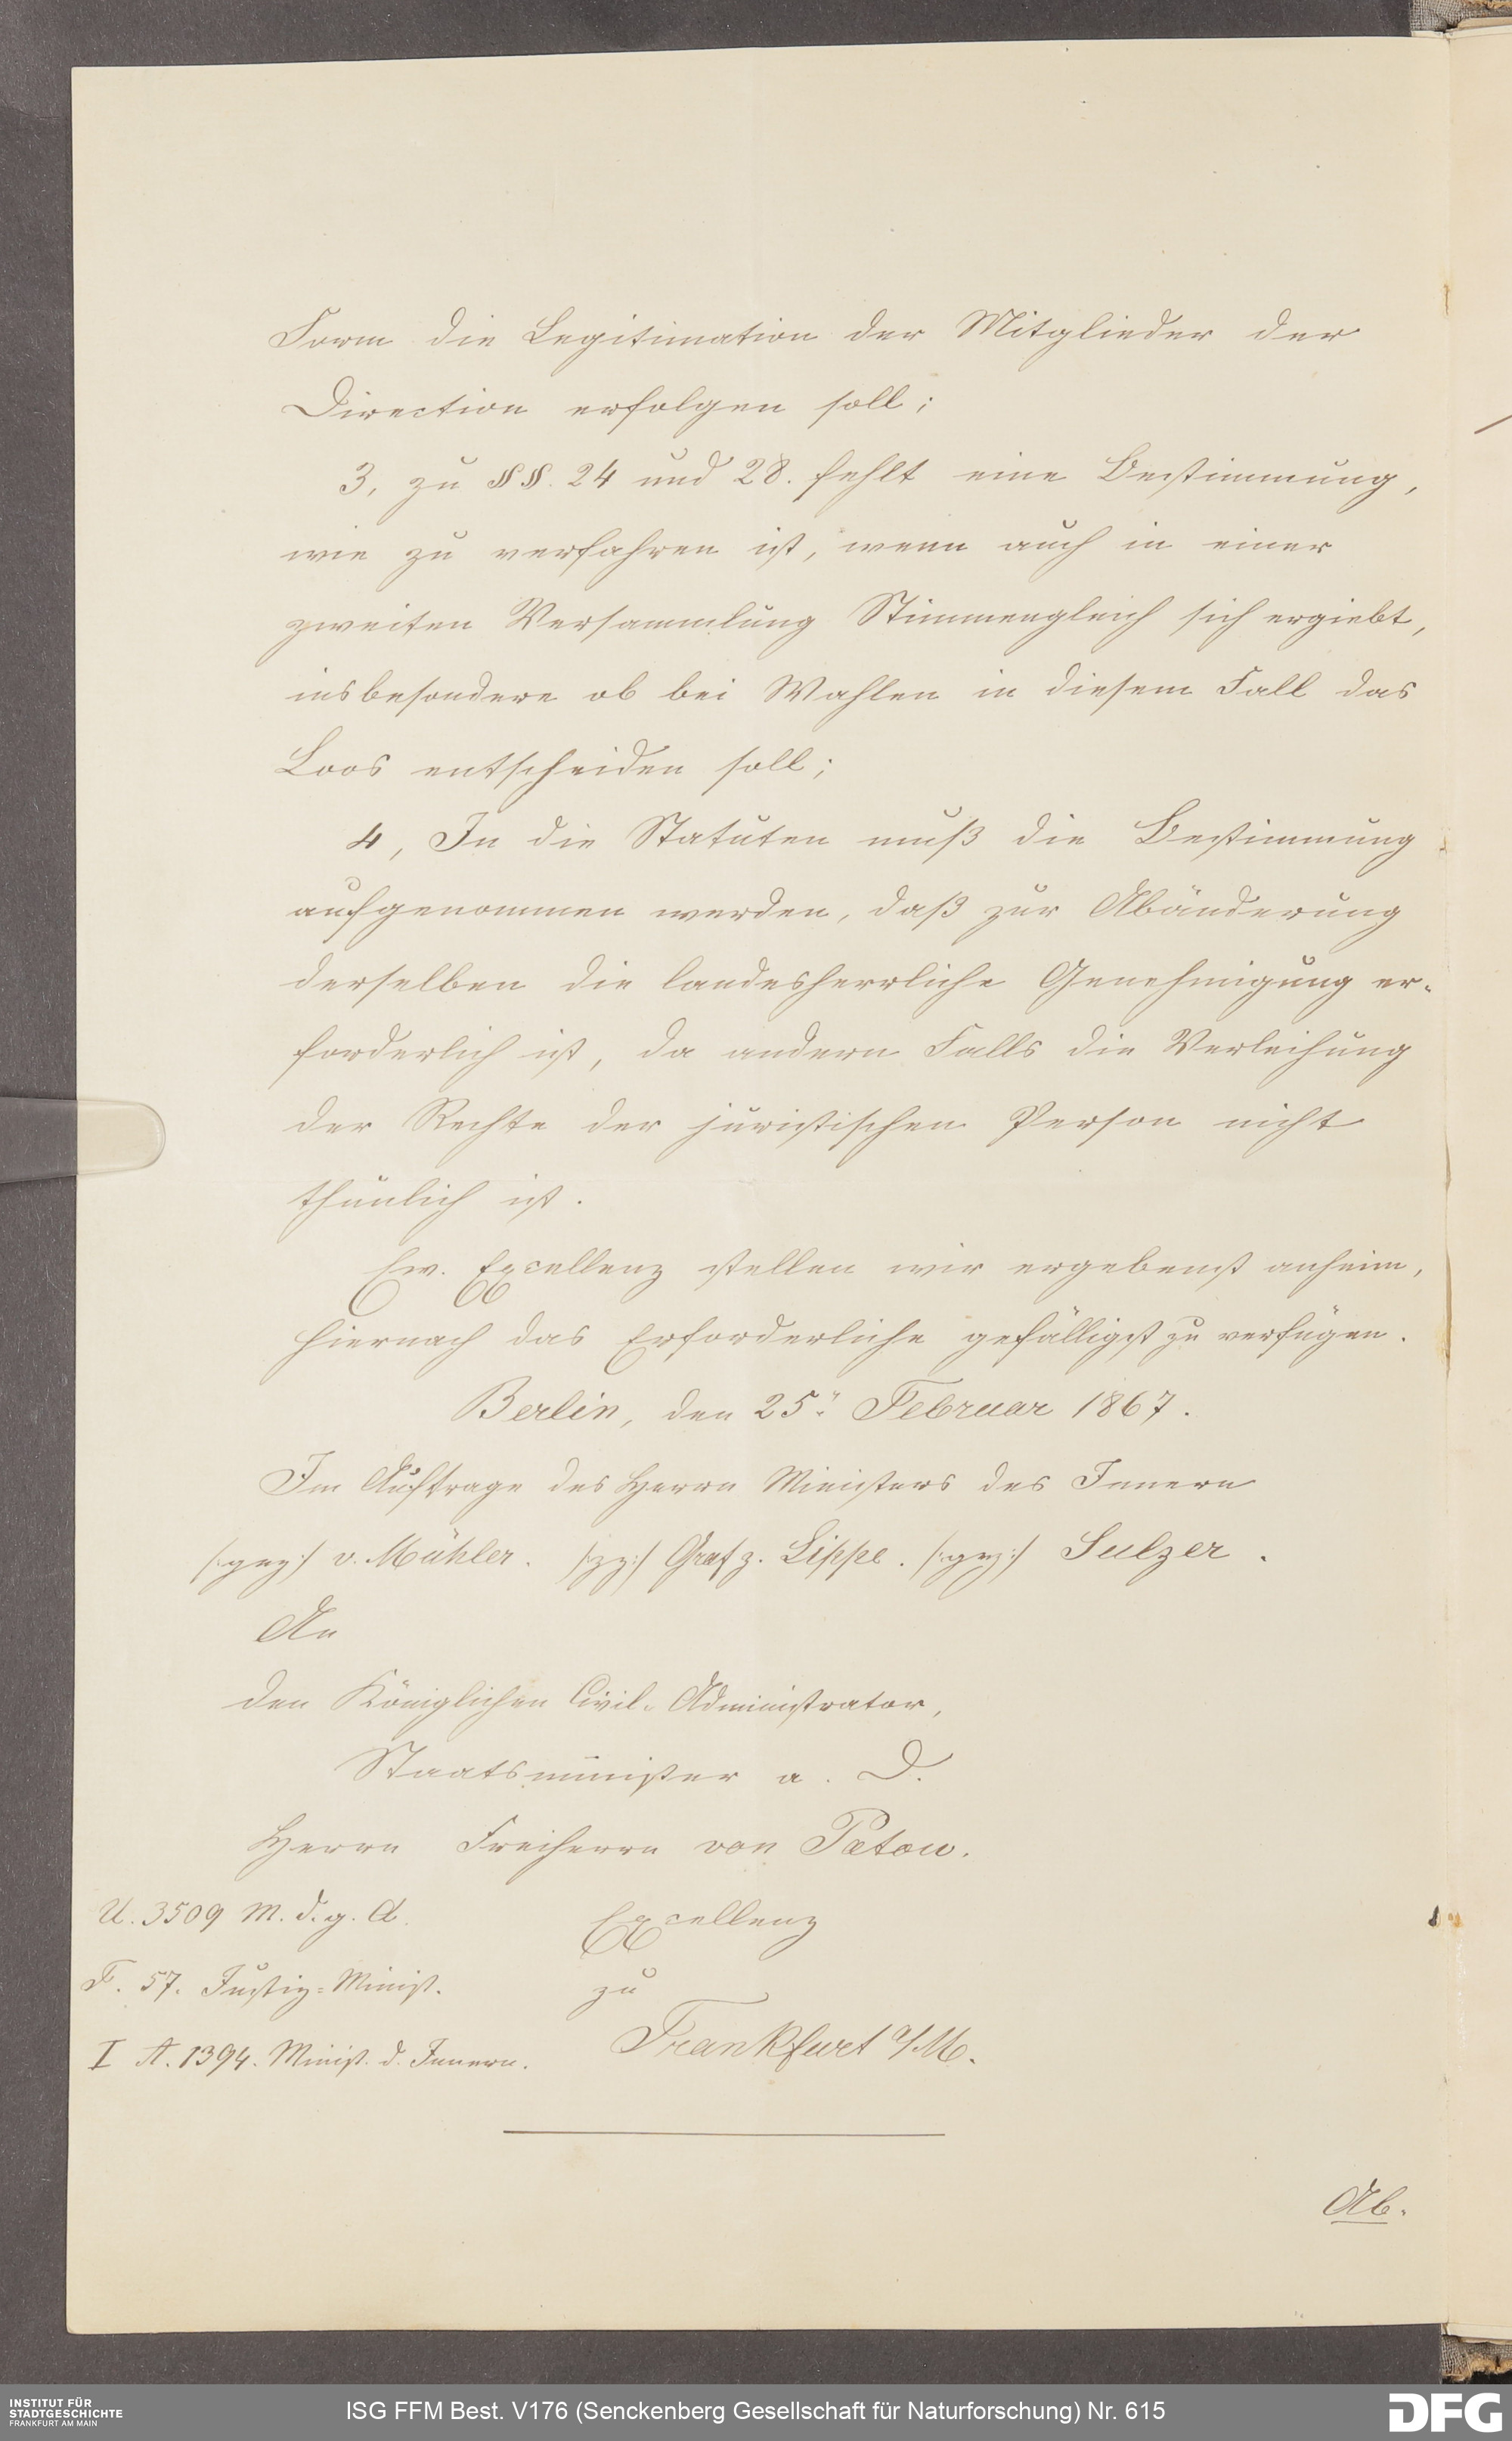 Form die Legitimation der Mitglieder der
Direction erfolgen soll;
3, zu §§. 24 und 28. fehlt eine Bestimmung,
wie zu verfahren ist, wenn auch in einer
zweiten Versammlung Stimmengleich sich ergiebt,
insbesondere ob bei Wahlen in diesem Fall das
Loos entscheiden soll;
4, In die Statuten muß die Bestimmung
aufgenommen werden, daß zur Abänderung
derselben die landesherrliche Genehmigung er-
forderlich ist, da andern Falls die Verleihung
der Rechte der juristischen Person nicht
thunlich ist.
Ew. Excellenz stellen wir ergebenst anheim,
hiernach das Erforderliche gefälligst zu verfügen.
Berlin, den 25. Februar 1867.
Im Auftrage des Herrn Ministers des Innern
/:gez:/ v. Mühler. /:gz:/ Graf z. Lippe. /:gez:/ Sulzer.
An
den Königlichen Civil-Administrator,
Staatsminister a. D.
Herrn Freiherrn von Patow.
U. 3509 M. d. g. A.
Excellenz
F. 57. Justiz-Minist.
zu
I A. 1394. Minist. d. Innern.
Frankfurt a/M.
Ab.
INSTITUT FÜR
STADTGESCHICHTE
FRANKFURT AM MAIN
ISG FFM Best. V176 (Senckenberg Gesellschaft für Naturforschung) Nr. 615
DFG